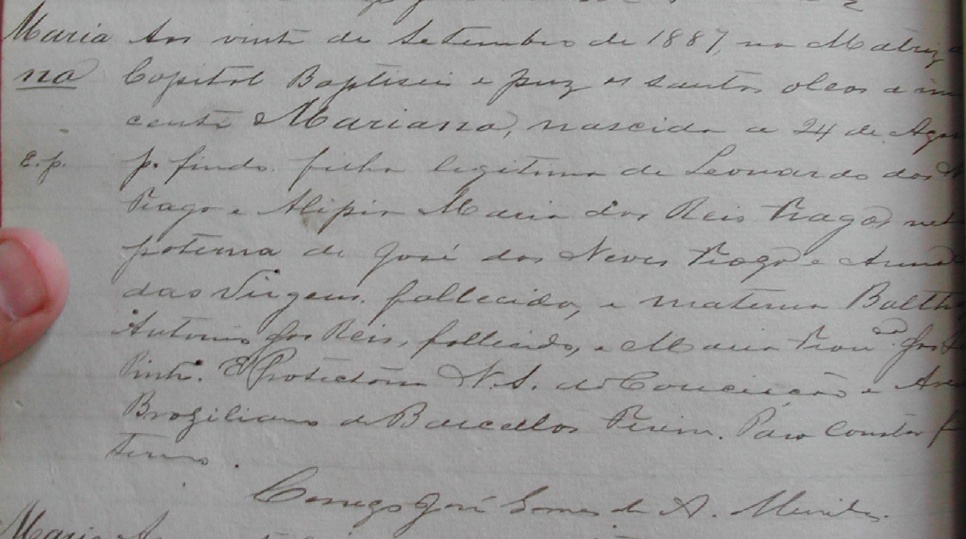 Maria Aos vinte de Setembro de 1887, na Matriz
na Capital Baptisei e puz os santos oleos a in
cente Marianna, nascida a 24 de Ago
E. p. p. findo. filha legitima de Leonardo dos
Trago e Alipia Maria dos Reis Trago, net
paterna de José das Neves Trago e Anna
das Virgens. fallecida, e materna Balth
Antonio dos Reis, fallecido, e Maria
Pinto. Protectora N. S. da Conceição e
Braziliano de Barcellos. Para constar f
termo.
Conego José Gomes de A. Meirelles.
Maria